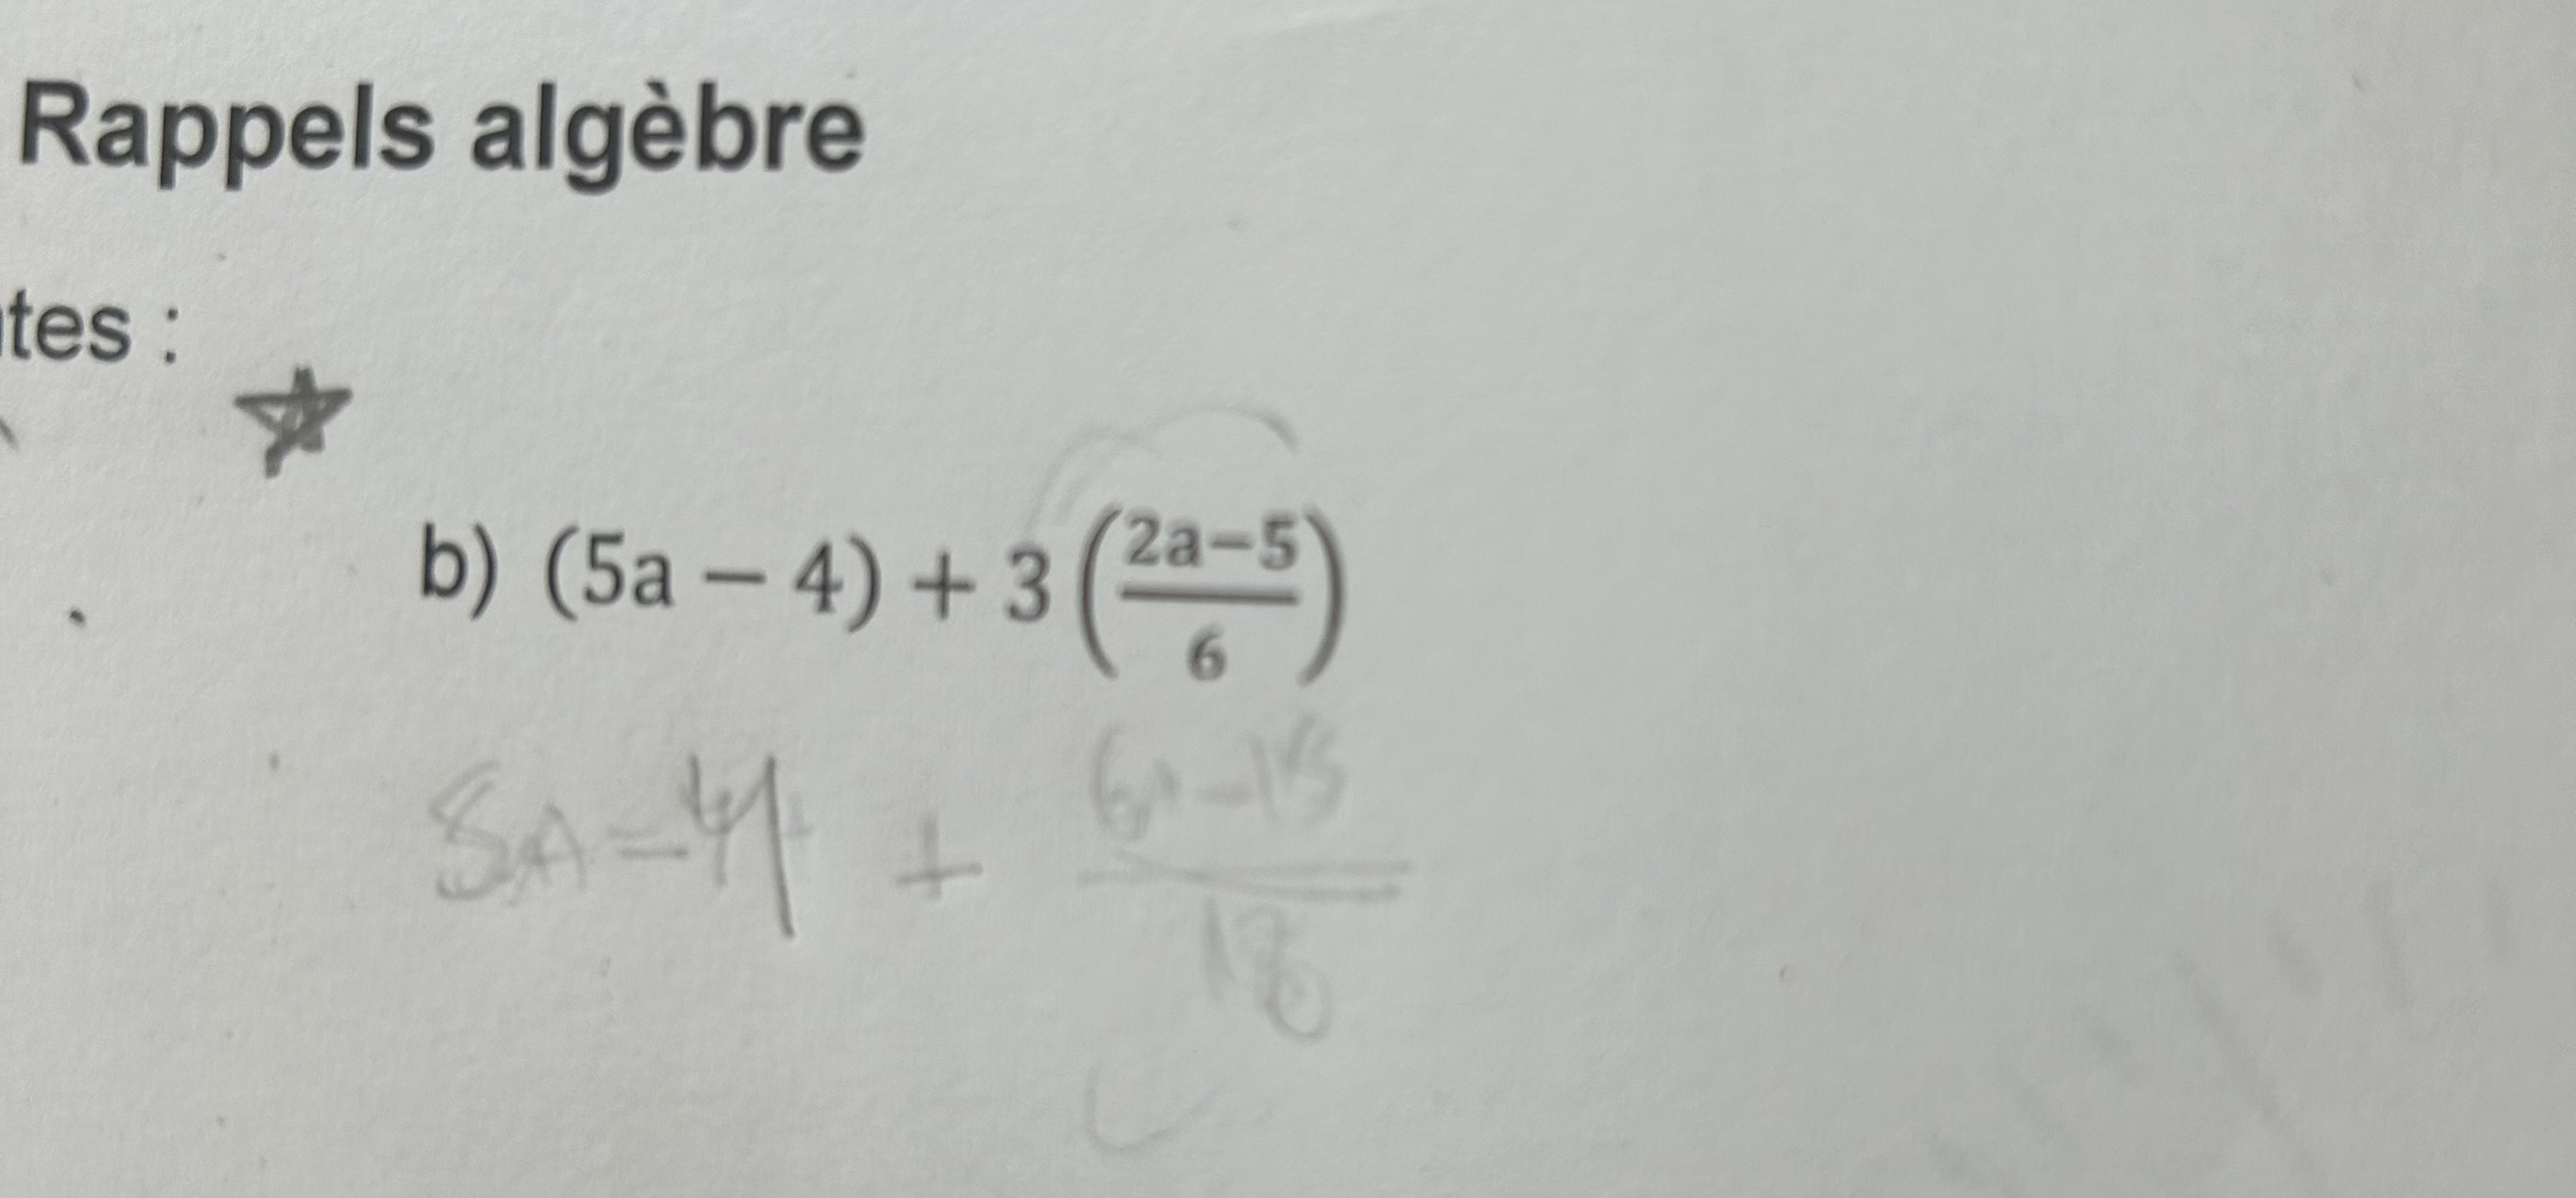 Rappels algèbre
tes :
b) (5a − 4) + 3 ((2a−5)/6)
5A − 4 + (6A − 15)/18